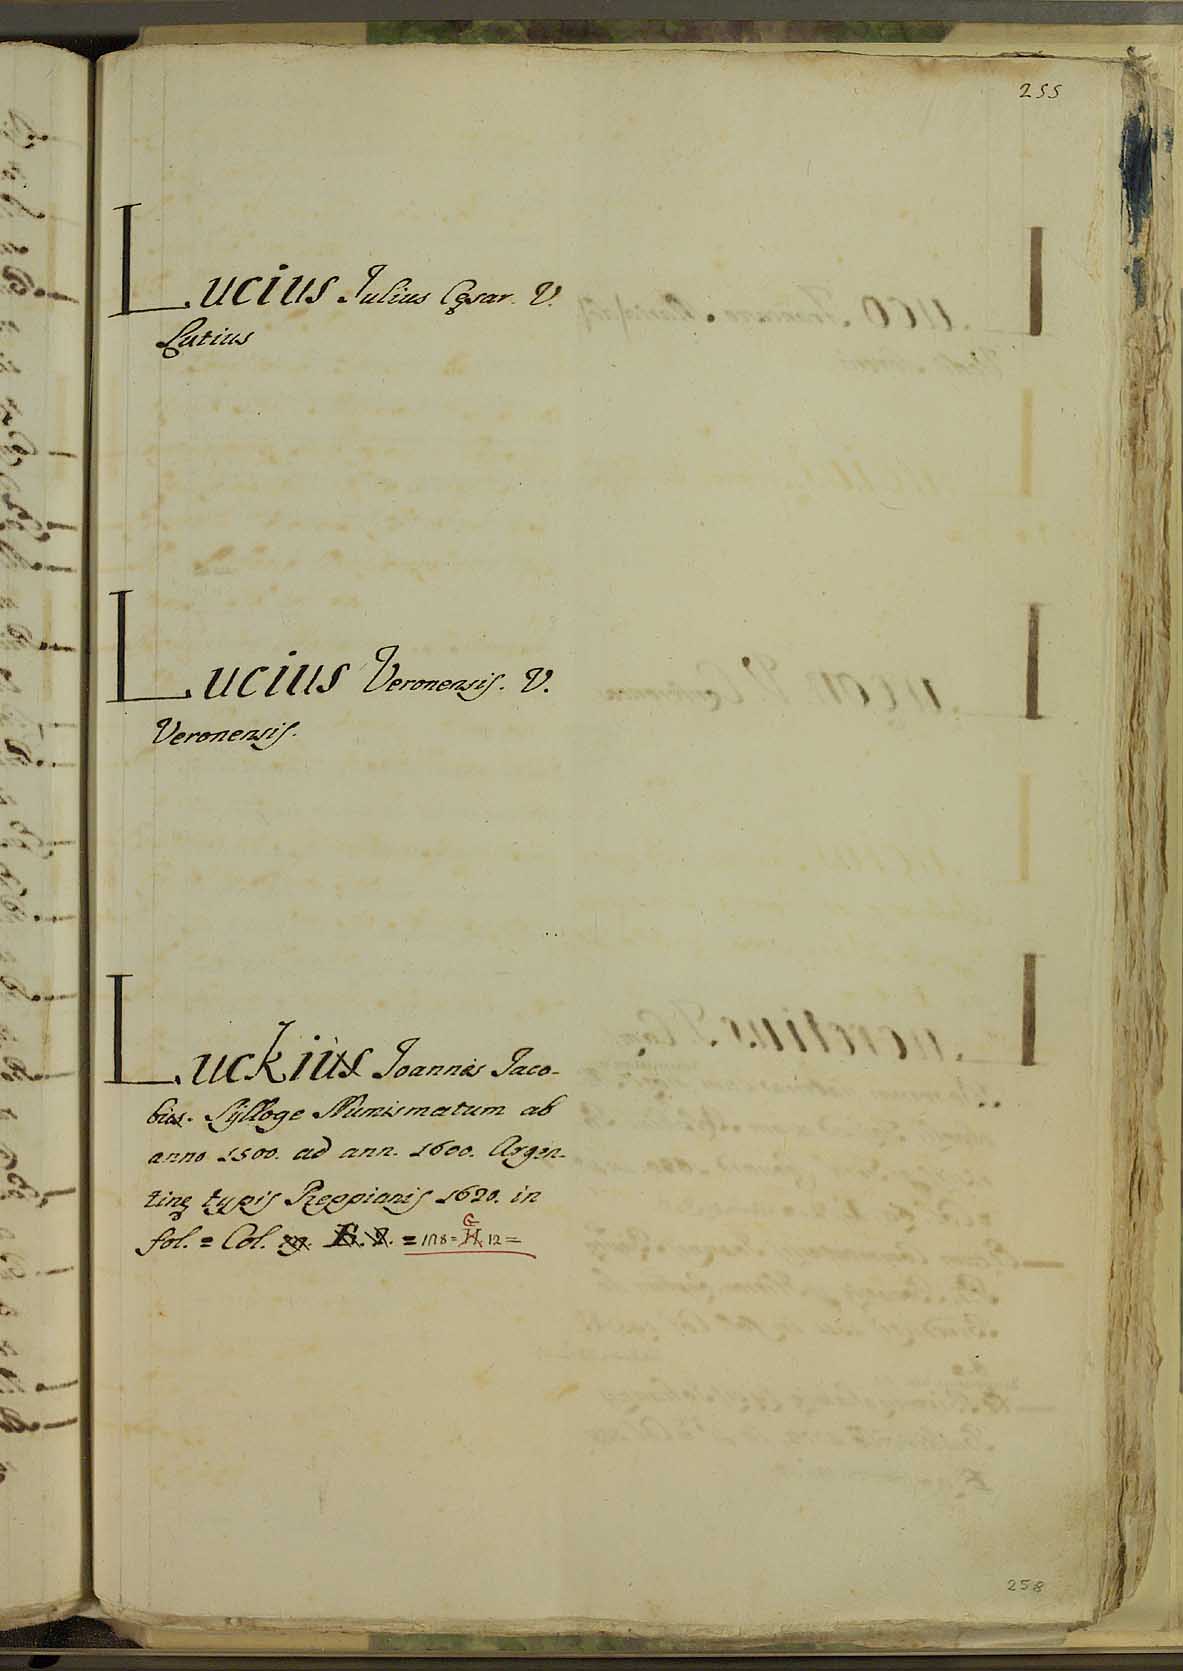 255
Lucius Julius Cęsar. V.
Lutius
Lucius Veronensis. V.
Veronensis.
Luckius Joannes Jaco-
bus. Sylloge Numismatum ab
anno 1500. ad ann. 1600. Argen-
tinę typis Reppianis 1620. in
fol. = Col. = 118 = G 12 =
258